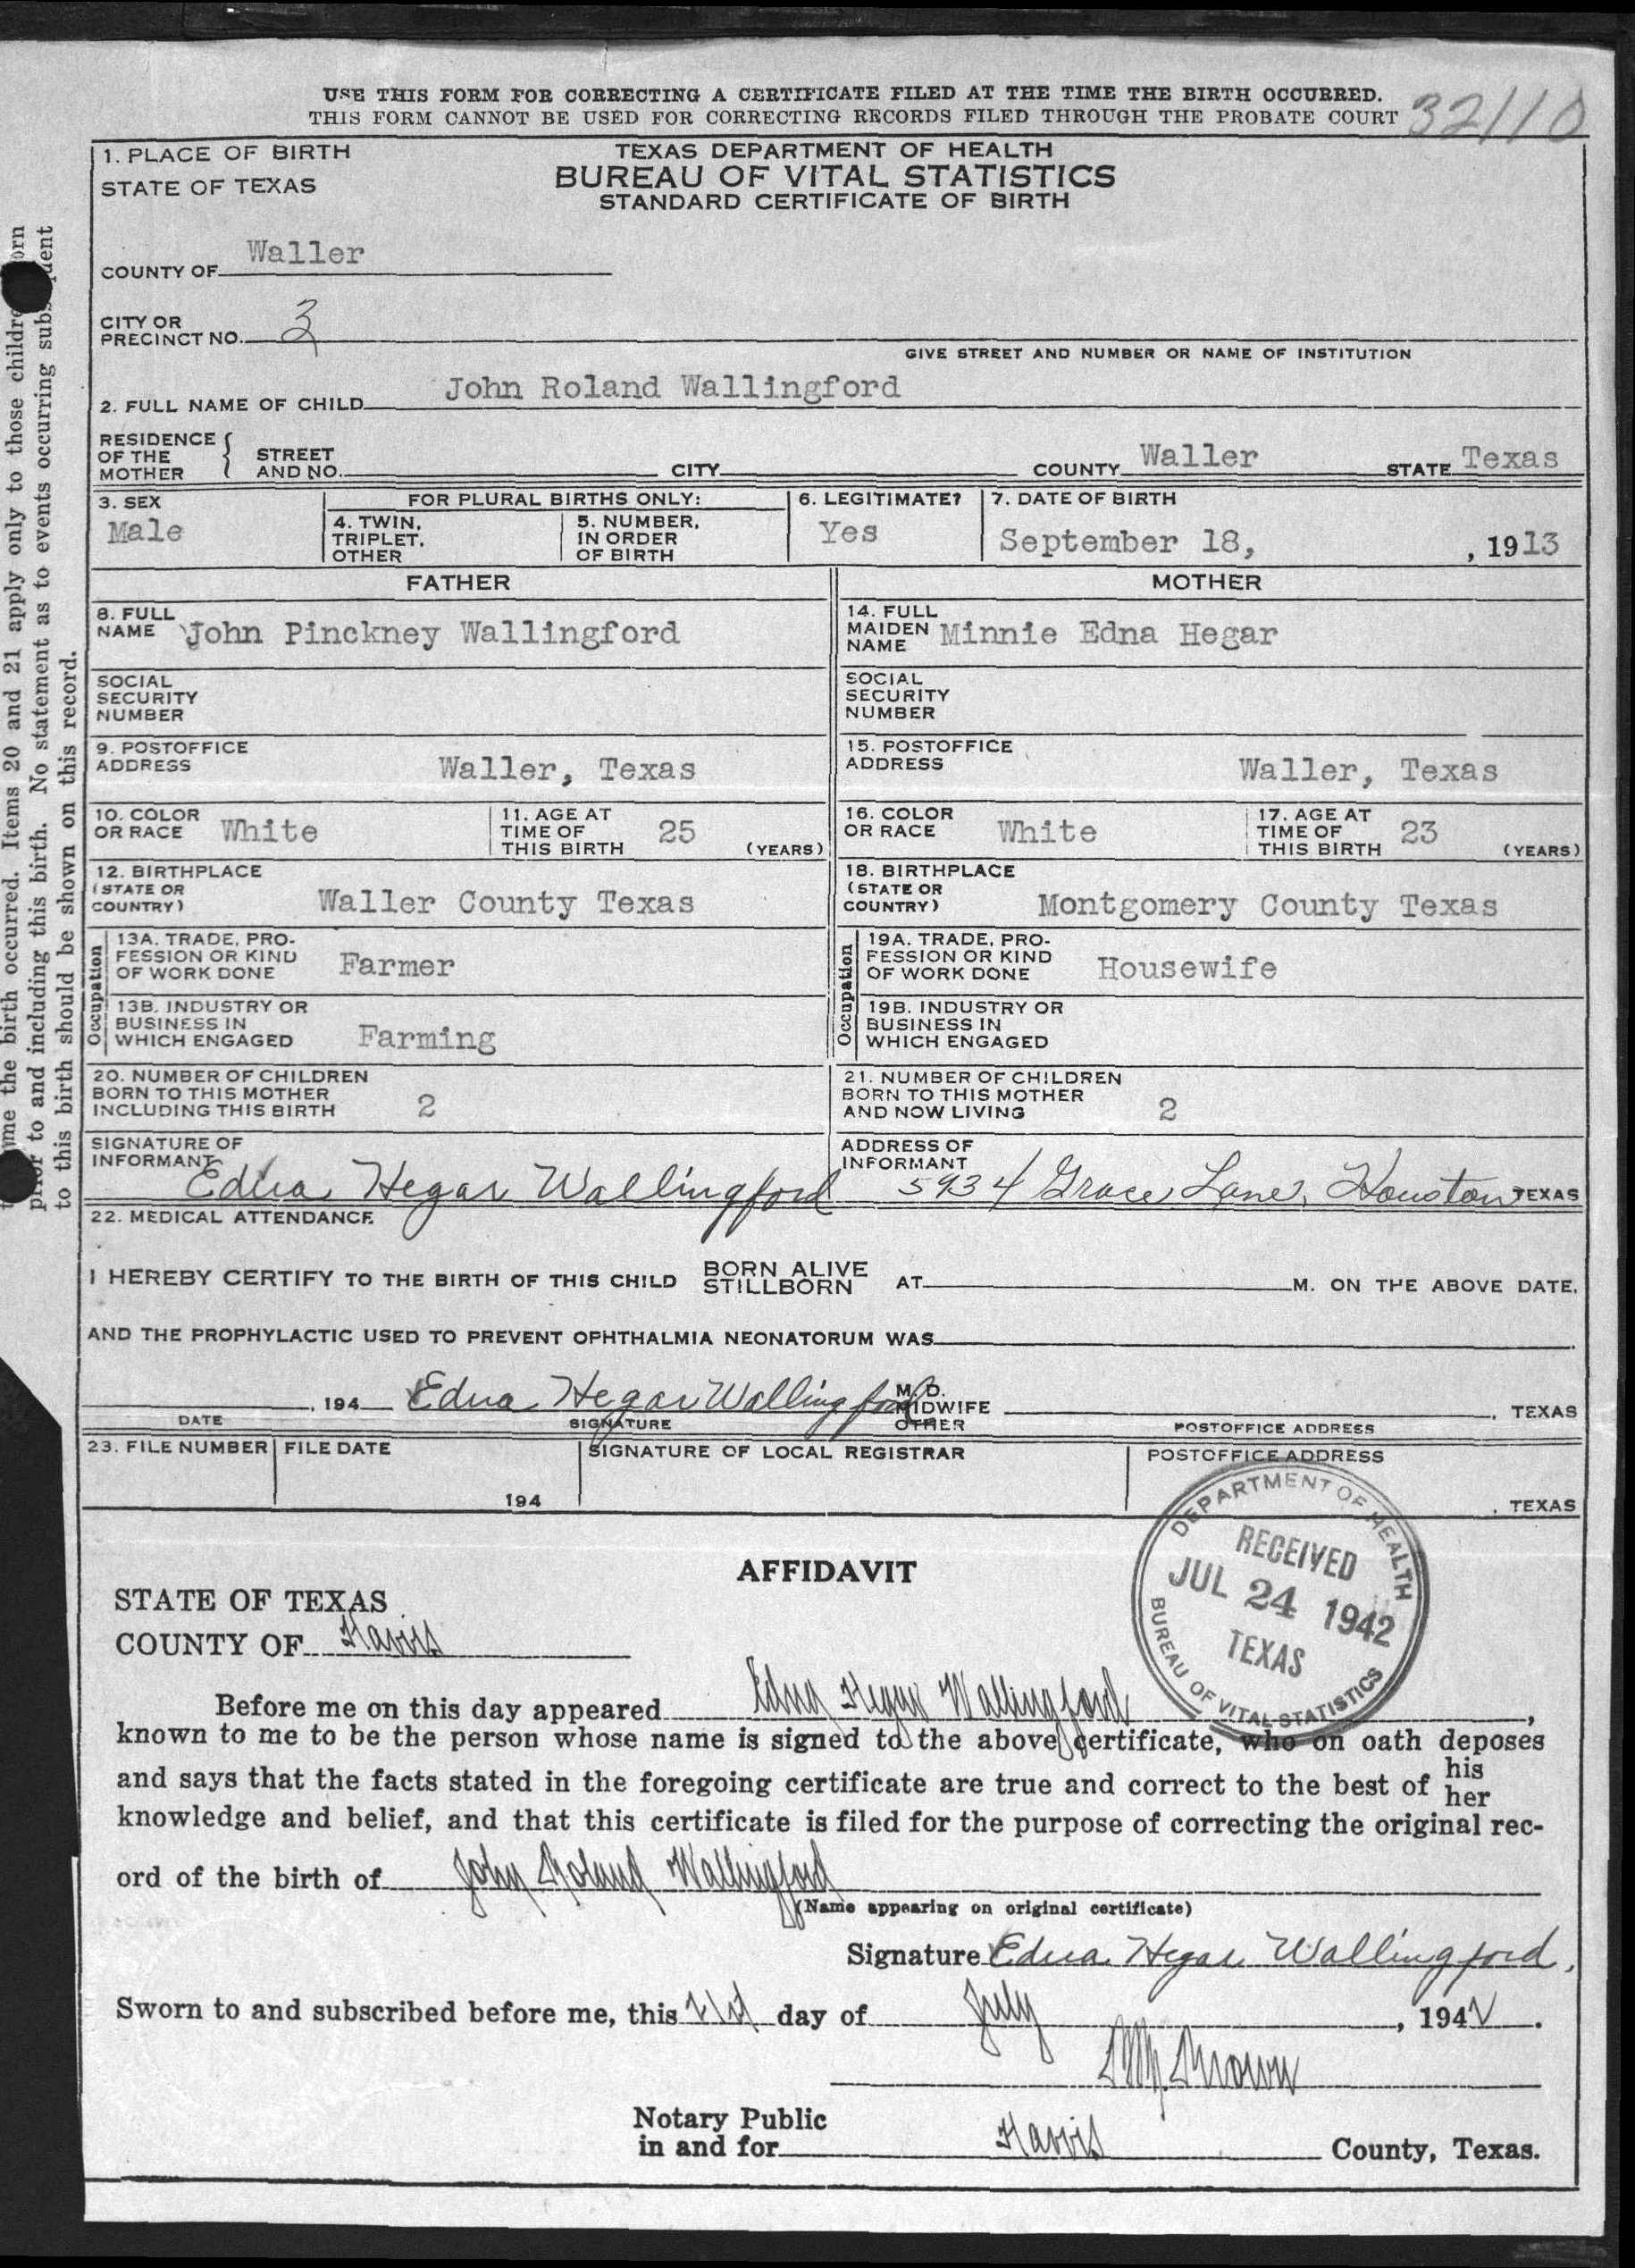 USE THIS FORM FOR CORRECTING A CERTIFICATE FILED AT THE TIME THE BIRTH OCCURRED.
THIS FORM CANNOT BE USED FOR CORRECTING RECORDS FILED THROUGH THE PROBATE COURT
32110
1. PLACE OF BIRTH
STATE OF TEXAS
TEXAS DEPARTMENT OF HEALTH
BUREAU OF VITAL STATISTICS
STANDARD CERTIFICATE OF BIRTH
COUNTY OF Waller
CITY OR
PRECINCT NO. 3
GIVE STREET AND NUMBER OR NAME OF INSTITUTION
2. FULL NAME OF CHILD John Roland Wallingford
RESIDENCE
OF THE
MOTHER
STREET
AND NO. CITY COUNTY Waller STATE Texas
3. SEX
Male
FOR PLURAL BIRTHS ONLY:
4. TWIN,
TRIPLET,
OTHER
5. NUMBER,
IN ORDER
OF BIRTH
6. LEGITIMATE?
Yes
7. DATE OF BIRTH
September 18, , 1913
FATHER
MOTHER
8. FULL
NAME John Pinckney Wallingford
14. FULL
MAIDEN
NAME Minnie Edna Hegar
SOCIAL
SECURITY
NUMBER
SOCIAL
SECURITY
NUMBER
9. POSTOFFICE
ADDRESS Waller, Texas
15. POSTOFFICE
ADDRESS Waller, Texas
10. COLOR
OR RACE White
11. AGE AT
TIME OF
THIS BIRTH 25 (YEARS)
16. COLOR
OR RACE White
17. AGE AT
TIME OF
THIS BIRTH 23 (YEARS)
12. BIRTHPLACE
(STATE OR
COUNTRY) Waller County Texas
18. BIRTHPLACE
(STATE OR
COUNTRY) Montgomery County Texas
Occupation
13A. TRADE, PRO-
FESSION OR KIND
OF WORK DONE Farmer
13B. INDUSTRY OR
BUSINESS IN
WHICH ENGAGED Farming
Occupation
19A. TRADE, PRO-
FESSION OR KIND
OF WORK DONE Housewife
19B. INDUSTRY OR
BUSINESS IN
WHICH ENGAGED
20. NUMBER OF CHILDREN
BORN TO THIS MOTHER
INCLUDING THIS BIRTH 2
21. NUMBER OF CHILDREN
BORN TO THIS MOTHER
AND NOW LIVING 2
SIGNATURE OF
INFORMANT Edna Hegar Wallingford
ADDRESS OF
INFORMANT 5934 Grace Lane, Houston TEXAS
22. MEDICAL ATTENDANCE
I HEREBY CERTIFY TO THE BIRTH OF THIS CHILD BORN ALIVE
STILLBORN AT M. ON THE ABOVE DATE.
AND THE PROPHYLACTIC USED TO PREVENT OPHTHALMIA NEONATORUM WAS
, 194 Edna Hegar Wallingford M. D.
MIDWIFE
OTHER , TEXAS
DATE SIGNATURE POSTOFFICE ADDRESS
23. FILE NUMBER FILE DATE SIGNATURE OF LOCAL REGISTRAR POSTOFFICE ADDRESS
194 , TEXAS
DEPARTMENT OF HEALTH
RECEIVED
JUL 24 1942
TEXAS
BUREAU OF VITAL STATISTICS
AFFIDAVIT
STATE OF TEXAS
COUNTY OF Harris
Before me on this day appeared Edna Hegar Wallingford ,
known to me to be the person whose name is signed to the above certificate, who on oath deposes
and says that the facts stated in the foregoing certificate are true and correct to the best of his
her
knowledge and belief, and that this certificate is filed for the purpose of correcting the original rec-
ord of the birth of John Roland Wallingford
(Name appearing on original certificate)
Signature Edna Hegar Wallingford,
Sworn to and subscribed before me, this 21st day of July , 1942 .
Brown
Notary Public
in and for Harris County, Texas.
me the birth occurred. Items 20 and 21 apply only to those children born
prior to and including this birth. No statement as to events occurring subsequent
to this birth should be shown on this record.